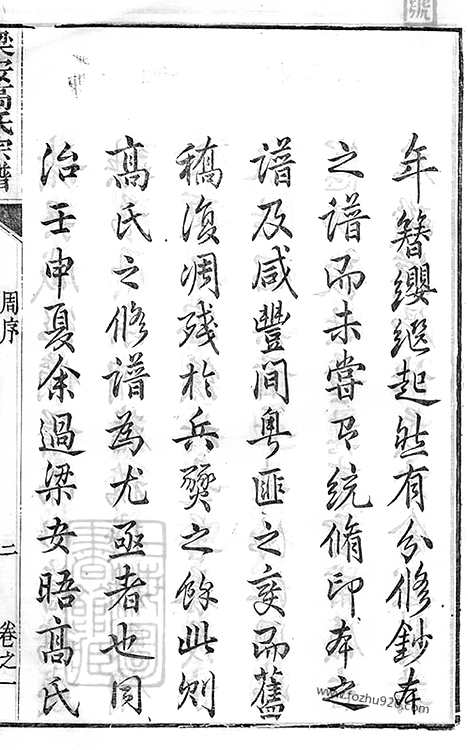 年簪纓繼起然有分修鈔本
之譜而未嘗有統脩印本之
譜及咸豐間粵匪之變而舊
稿復凋殘於兵燹之餘此則
髙氏之修譜為尤亟者也同
治壬申夏余過梁安晤髙氏
梁安高氏宗譜
周序
二
卷之一
www.fozhu920.com